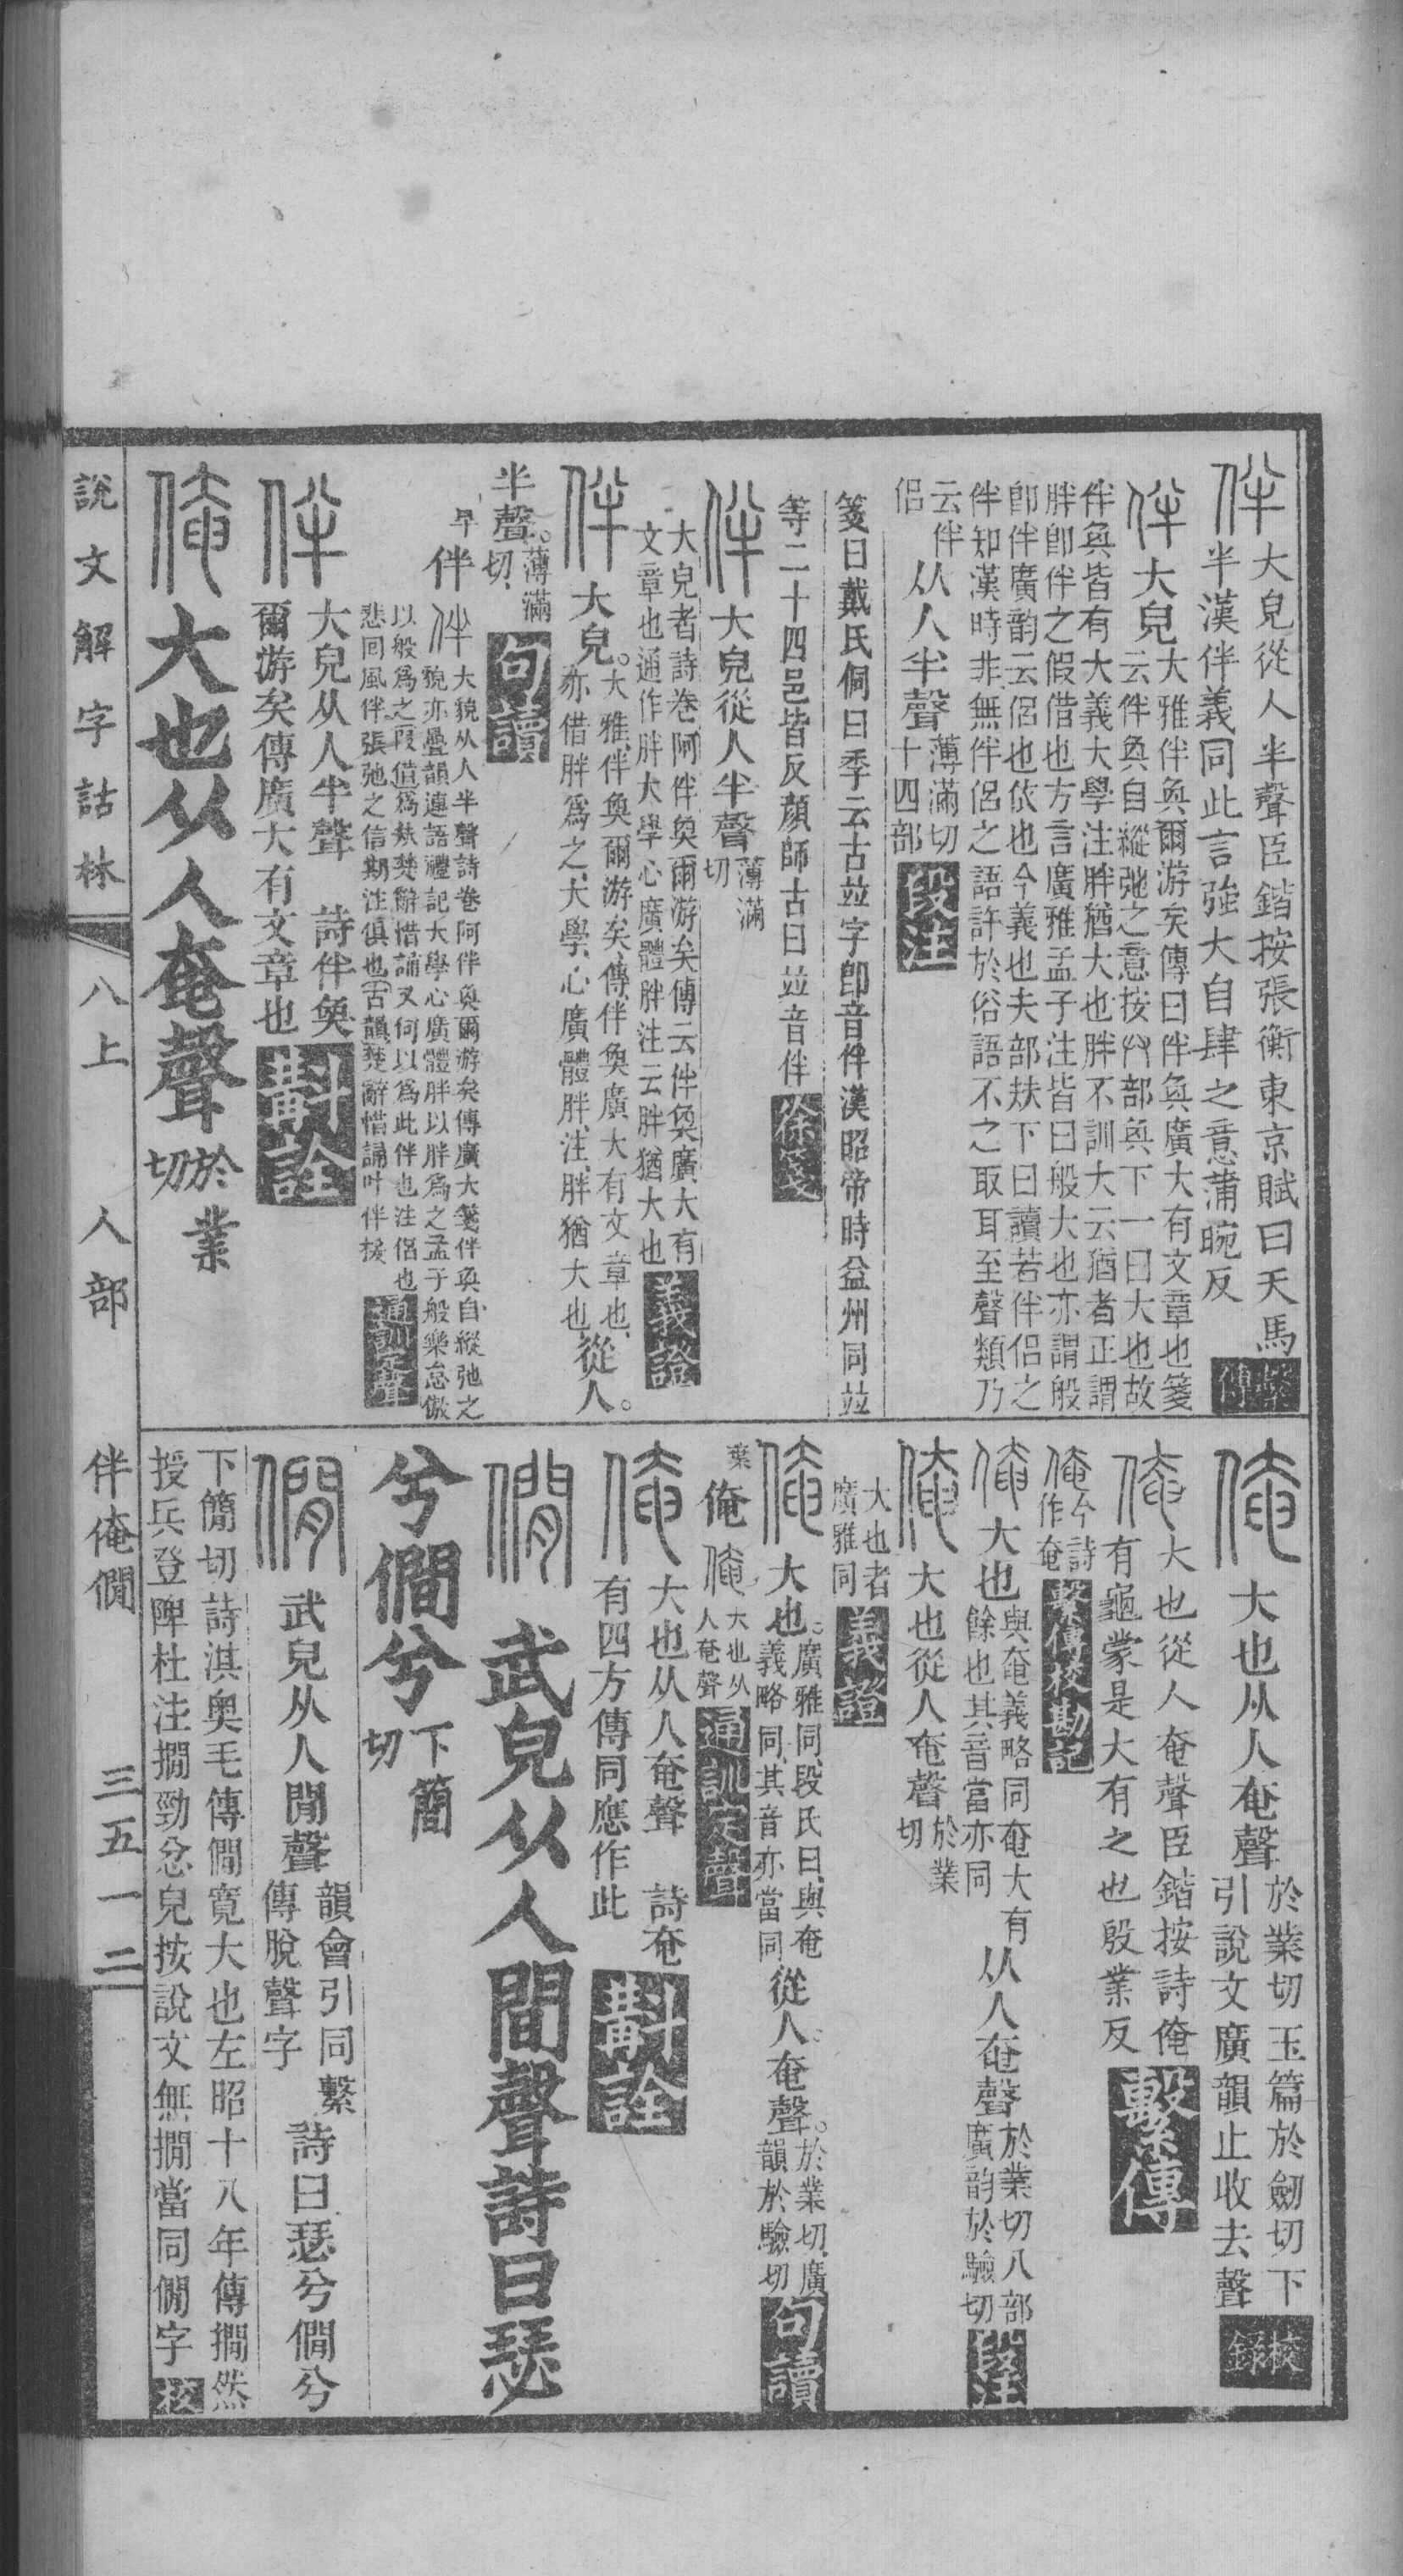 伴大皃從人半聲臣鍇按張衡東京賦曰天馬
半漢伴義同此言強大自肆之意蒲晼反繫傳
伴大皃大雅伴奐爾游矣傳曰伴奐廣大有文章也箋
云伴奐自縱弛之意按𠬞部奐下一曰大也故
伴奐皆有大義大學注胖猶大也胖不訓大云猶者正謂
胖卽伴之假借也方言廣雅孟子注皆曰般大也亦謂般
卽伴廣韵云侶也依也今義也夫部㚘下曰讀若伴侶之
伴知漢時非無伴侶之語許於俗語不之取耳至聲類乃
云伴
侶从人半聲薄滿切
十四部段注
箋曰戴氏侗曰季云古竝字卽音伴漢昭帝時益州同竝
等二十四邑皆反顏師古曰竝音伴徐箋
伴大皃從人半聲薄滿
切
大皃者詩卷阿伴奐爾游矣傳云伴奐廣大有
文章也通作胖大學心廣體胖注云胖猶大也義證
伴大皃。大雅、伴奐爾游矣、傳、伴奐廣大有文章也、
亦借胖爲之、大學、心廣體胖、注、胖猶大也從人。
半聲。薄滿
切、句讀
伴伴大貌从人半聲詩卷阿伴奐爾游矣傳廣大箋伴奐自縱弛之
貌亦疊韻連語禮記大學心廣體胖以胖爲之孟子般樂怠傲
以般爲之叚借爲㚘楚辭惜誦又何以爲此伴也注侶也
悲回風伴張弛之信期注俱也古韻楚辭惜誦叶伴援通訓定聲
伴大皃从人半聲 詩伴奐
爾游矣傳廣大有文章也斠詮
俺大也从人奄聲於業
切
俺大也从人奄聲於業切玉篇於劒切下
引說文廣韻止收去聲校錄
俺大也從人奄聲臣鍇按詩俺
有龜蒙是大有之也殷業反繫傳
俺今詩
作奄繫傳校勘記
俺大也與奄義略同奄大有
餘也其音當亦同从人奄聲於業切八部
廣韵於驗切段注
俺大也從人奄聲於業
切
大也者
廣雅同義證
俺大也。廣雅同、段氏曰、與奄
義略同、其音亦當同、從人。奄聲。於業切、廣
韻於驗切句讀
俺俺大也从
人奄聲通訓定聲
俺大也从人奄聲 詩奄
有四方傳同應作此斠詮
僩武皃从人閒聲詩曰瑟
兮僩兮下簡
切
僩武皃从人閒聲韻會引同繫
傳脫聲字詩曰瑟兮僩兮
下簡切詩淇奧毛傳僩寬大也左昭十八年傳撊然
授兵登陴杜注撊勁忿皃按說文無撊當同僩字校
說文解字詁林 八上 人部 伴俺僩 三五一二